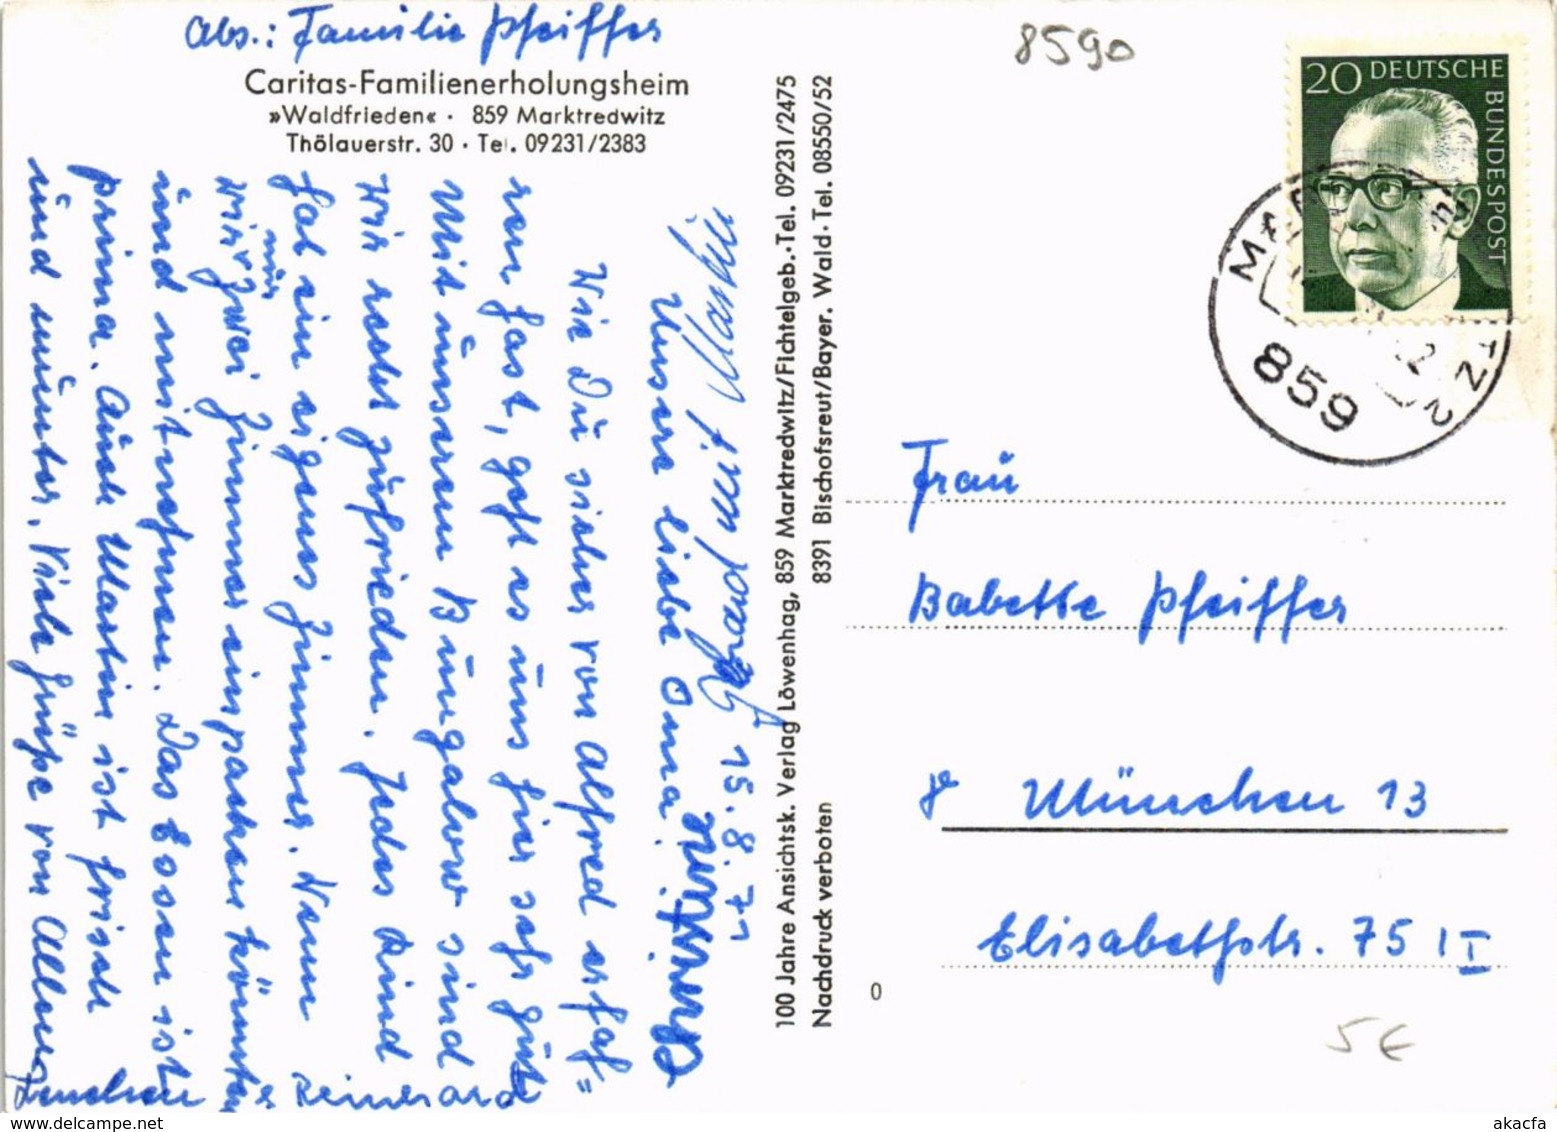 Abs.: Familie Pfeiffer
Caritas-Familienerholungsheim
»Waldfrieden« · 859 Marktredwitz
Thölauerstr. 30 · Tel. 09231/2383
15.8.71
Unsere liebe Oma!
Wie Du sicher von Alfred erfah=
ren hast, geht es uns hier sehr gut.
Mit unserem Bungalow sind
wir sehr zufrieden. Jedes Kind
hat ein eigenes Zimmer. Wenn
wir nur zwei Zimmer einpacken könnten
und mitnehmen. Das Essen ist
prima. Auch Martin ist frisch
und munter. Viele Grüße von Allen
Martin
100 Jahre Ansichtsk. Verlag Löwenhag, 859 Marktredwitz/Fichtelgeb.·Tel. 09231/2475
Nachdruck verboten 8391 Bischofsreut/Bayer. Wald·Tel. 08550/52
8590
20 DEUTSCHE
BUNDESPOST
859
Frau
Babette Pfeiffer
8 München 13
Elisabethstr. 75 I
0
5€
www.akacfa.com